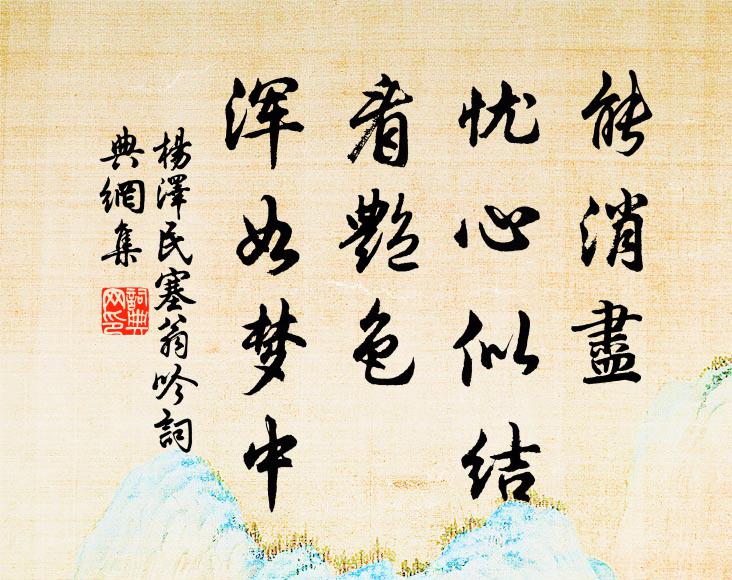 能消盡
忧心似结
看艷色
浑如梦中
楊澤民塞翁吟詞
典網集
詞典
网印